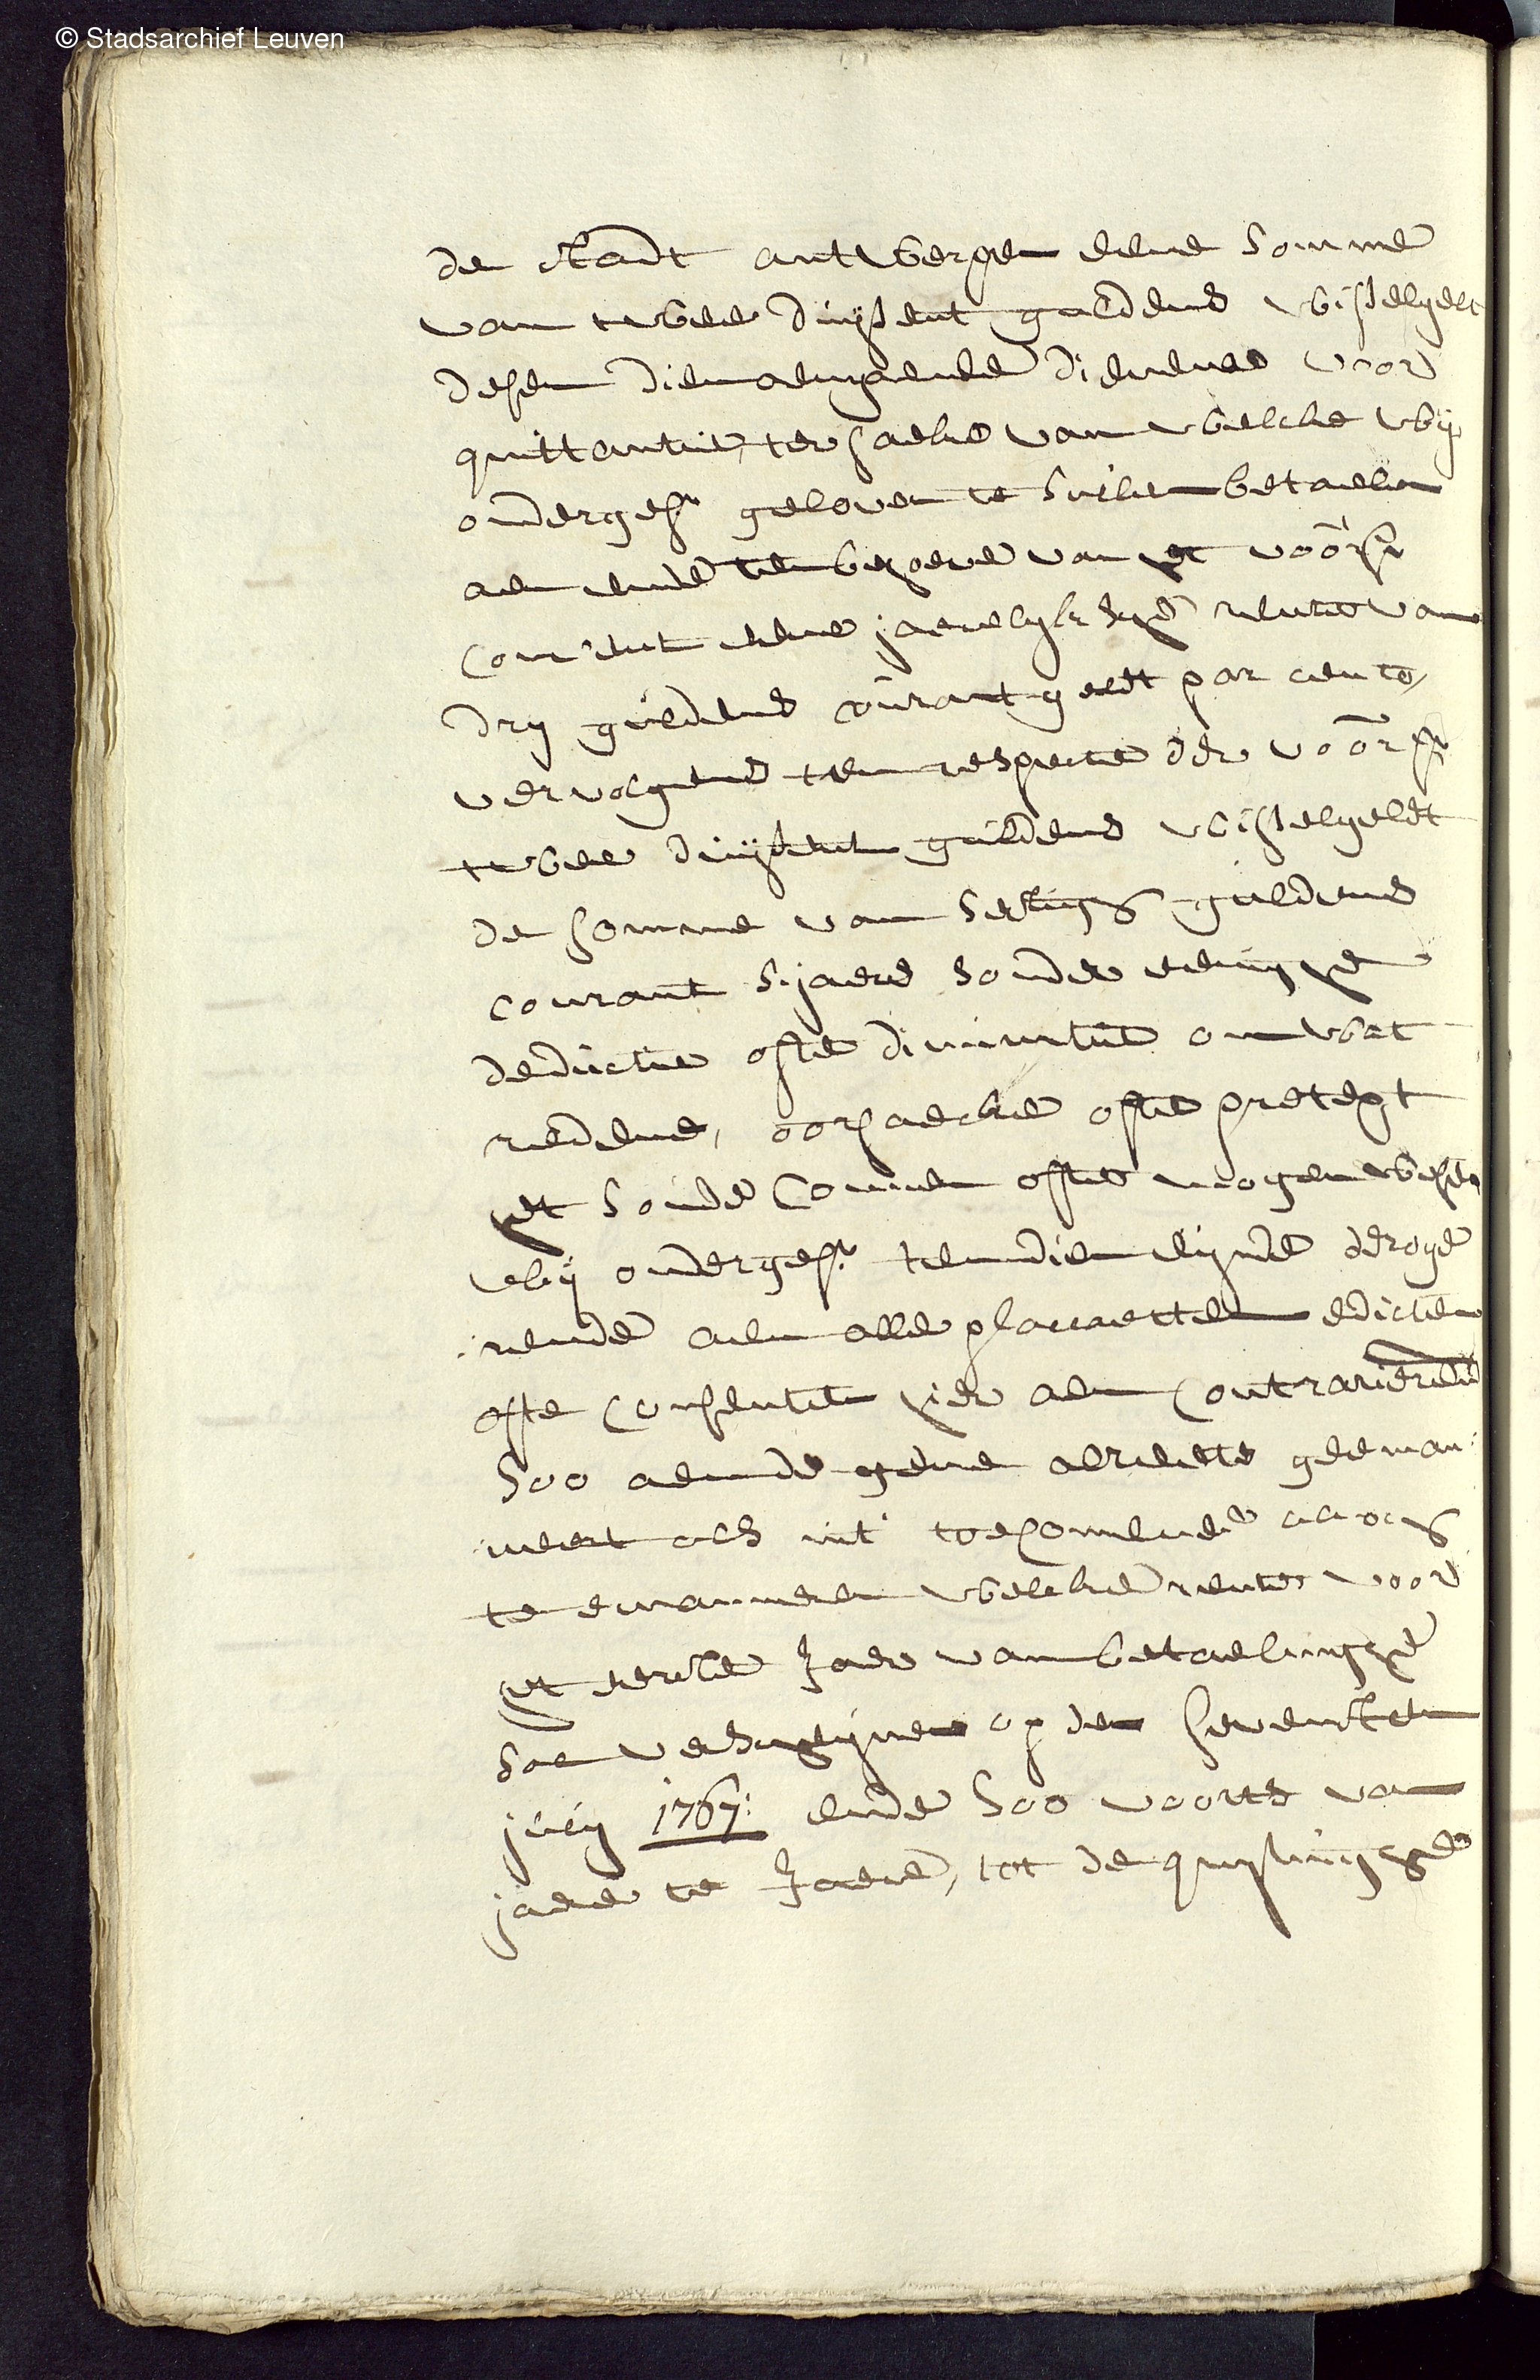 © Stadsarchief Leuven
de stadt antwerpen eene somme
van twee duijsent guldens wisselgelt
desen dienaengaende dienende voor
quittantie, ter saeke van welcke wij
ondergesr geloven te sullen betaelen
aen ende ten behoeve van het voorsr
convent eene jaerelyckxe rente van
dry guldens courant geldt par cento,
vervolgens ten respecte der voorsr
twee duijsent guldens wisselgeldt
de somme van sestigh guldens
courant s'jaers sonder eenige
deductie ofte diminutie om wat
redene, oorsaecke ofte pretext
het soude connen ofte mogen wesen
wij ondergesr ten dien eijnde deroge
rende aen alle placcaetten edicten
ofte consenten hier aen contrarierende
soo aende gene alreets geeman
neert als int' toecomende alnogh
te emanneren welcke rente voor
het eerste jaer van betaelinghe
sal verscheijnen op den sevensten
julij 1767: ende soo voorts van
jaere te jaere, tot de quytinghe